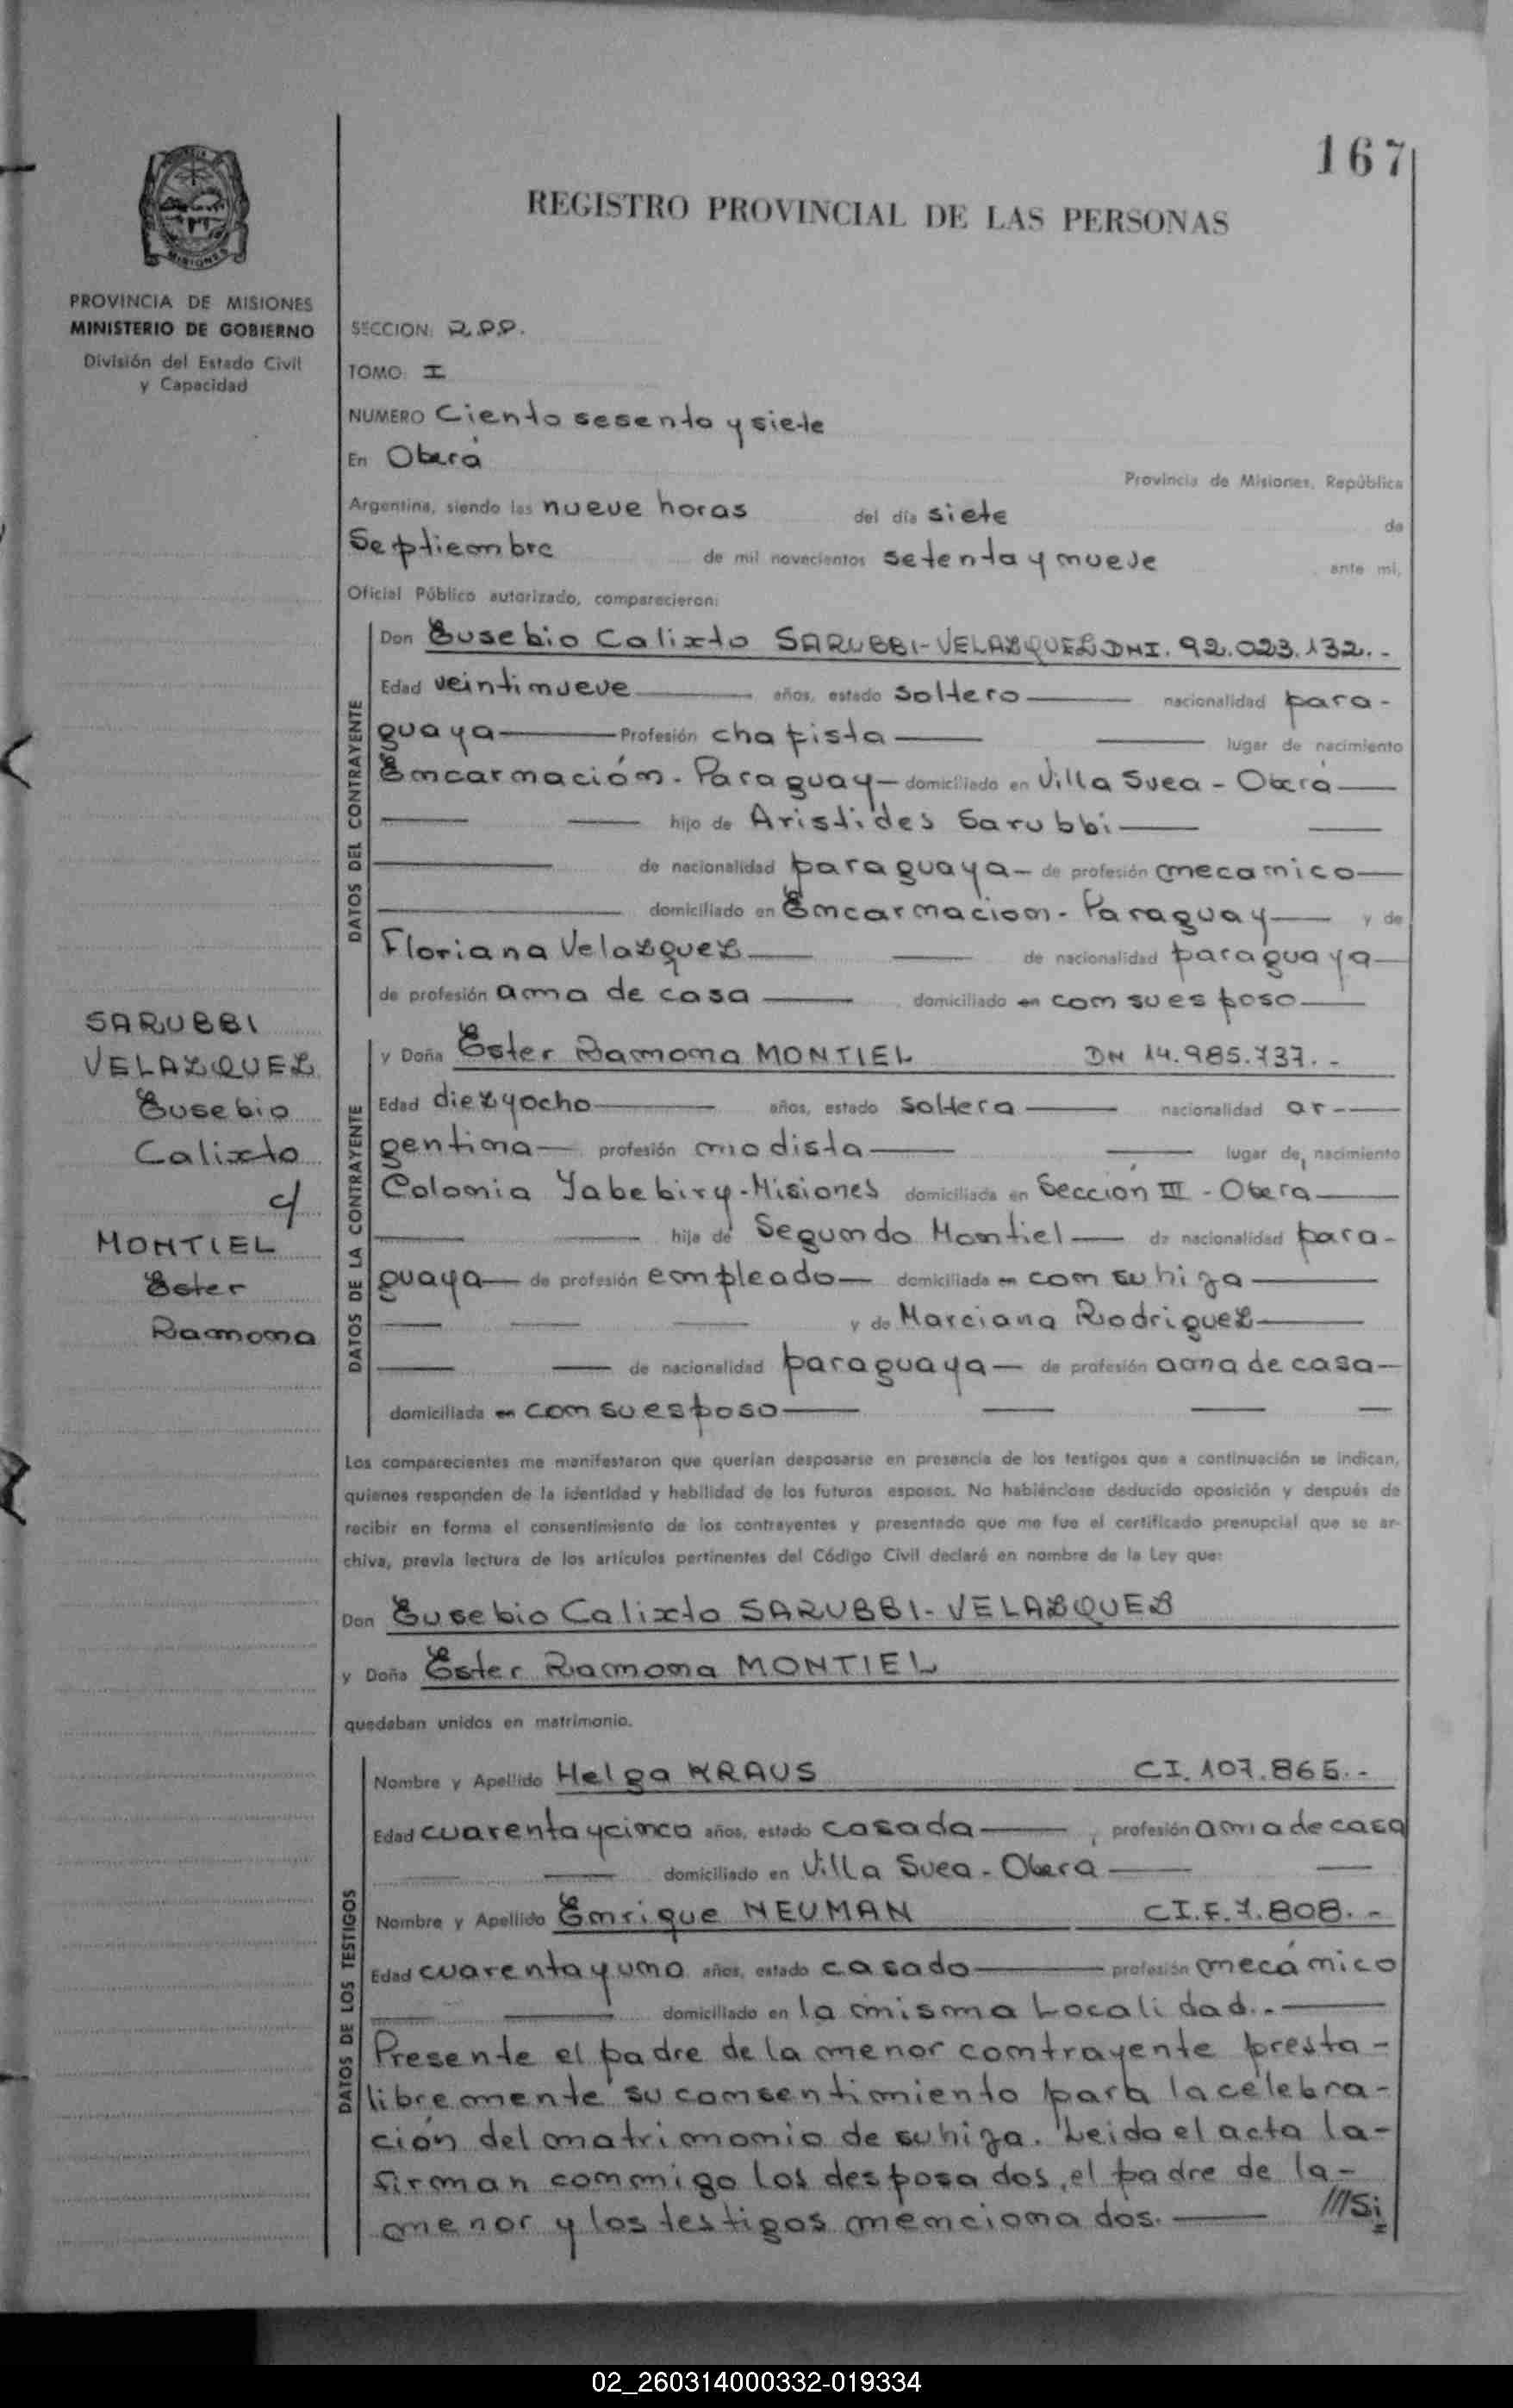 167
REGISTRO PROVINCIAL DE LAS PERSONAS
MISIONES
PROVINCIA DE MISIONES
MINISTERIO DE GOBIERNO
División del Estado Civil
y Capacidad
SECCION: R.P.P.
TOMO: I
NUMERO Ciento sesenta y siete
En Oberá
Provincia de Misiones, República
Argentina, siendo las nueve horas del día siete de
Septiembre de mil novecientos setenta y nueve ante mi,
Oficial Público autorizado, comparecieron:
DATOS DEL CONTRAYENTE
Don Eusebio Calixto SARUBBI-VELAZQUEZ DNI. 92.023.132.-
Edad veintinueve años, estado soltero nacionalidad para-
guaya Profesión chapista lugar de nacimiento
Encarnación - Paraguay domiciliado en Villa Svea - Oberá
hijo de Aristides Sarubbi
de nacionalidad paraguaya de profesión mecanico
domiciliado en Encarnacion - Paraguay y de
Floriana Velazquez de nacionalidad paraguaya
de profesión ama de casa domiciliado en con su esposo
SARUBBI
VELAZQUEZ
Eusebio
Calixto
c/
MONTIEL
Ester
Ramona
DATOS DE LA CONTRAYENTE
y Doña Ester Ramona MONTIEL DN 14.985.737.-
Edad diezyocho años, estado soltera nacionalidad ar-
gentina profesión modista lugar de nacimiento
Colonia Yabebiry - Misiones domiciliada en Sección III - Oberá
hija de Segundo Montiel de nacionalidad para-
guaya de profesión empleado domiciliada en con su hija
y de Marciana Rodriguez
de nacionalidad paraguaya de profesión ama de casa
domiciliada en con su esposo
Los comparecientes me manifestaron que querían desposarse en presencia de los testigos que a continuación se indican,
quienes responden de la identidad y habilidad de los futuros esposos. No habiéndose deducido oposición y después de
recibir en forma el consentimiento de los contrayentes y presentado que me fue el certificado prenupcial que se ar-
chiva, previa lectura de los artículos pertinentes del Código Civil declaré en nombre de la Ley que:
Don Eusebio Calixto SARUBBI-VELAZQUEZ
y Doña Ester Ramona MONTIEL
quedaban unidos en matrimonio.
DATOS DE LOS TESTIGOS
Nombre y Apellido Helga KRAUS CI. 107.865.-
Edad cuarenta y cinco años, estado casada, profesión ama de casa
domiciliado en Villa Svea - Oberá
Nombre y Apellido Enrique NEUMAN CI.F.7.808.-
Edad cuarenta y uno años, estado casado profesión mecánico
domiciliado en la misma Localidad.-
Presente el padre de la menor contrayente presta-
libremente su consentimiento para la celebra-
ción del matrimonio de su hija. Leido el acta la-
firman conmigo los desposados, el padre de la-
menor y los testigos mencionados. ///Si
02_260314000332-019334